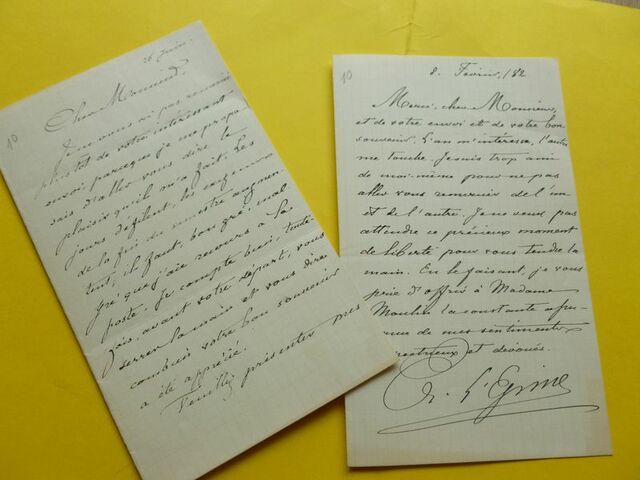 10
26 juin.
Cher Monsieur.
Je ne vous ai pas remercié
plus tôt de votre intéressant
envoi parceque je me propo
sais d'aller vous dire le
plaisir qu'il m'a fait; les
jours défilent, les exigences
de la fin du semestre augmen
tent; il faut, bon gré, mal
gré que j'aie recours à la
poste. Je compte bien, toute-
fois, avant votre départ, vous
serrer la main et vous dire
combien votre bon souvenir
a été apprécié.
Veuillez présenter mes
10
8. Février, /82
Merci, cher Monsieur,
et de votre envoi et de votre bon
souvenir. L'un m'intéresse, l'autre
me touche. Je suis trop ami
de moi-même pour ne pas
aller vous remercier de l'un
et de l'autre. Je ne veux pas
attendre ce précieux moment
de liberté pour vous tendre la
main. En le faisant, je vous
prie d'offrir à Madame
Moulin la constante
de mes sentiments
et dévoués.